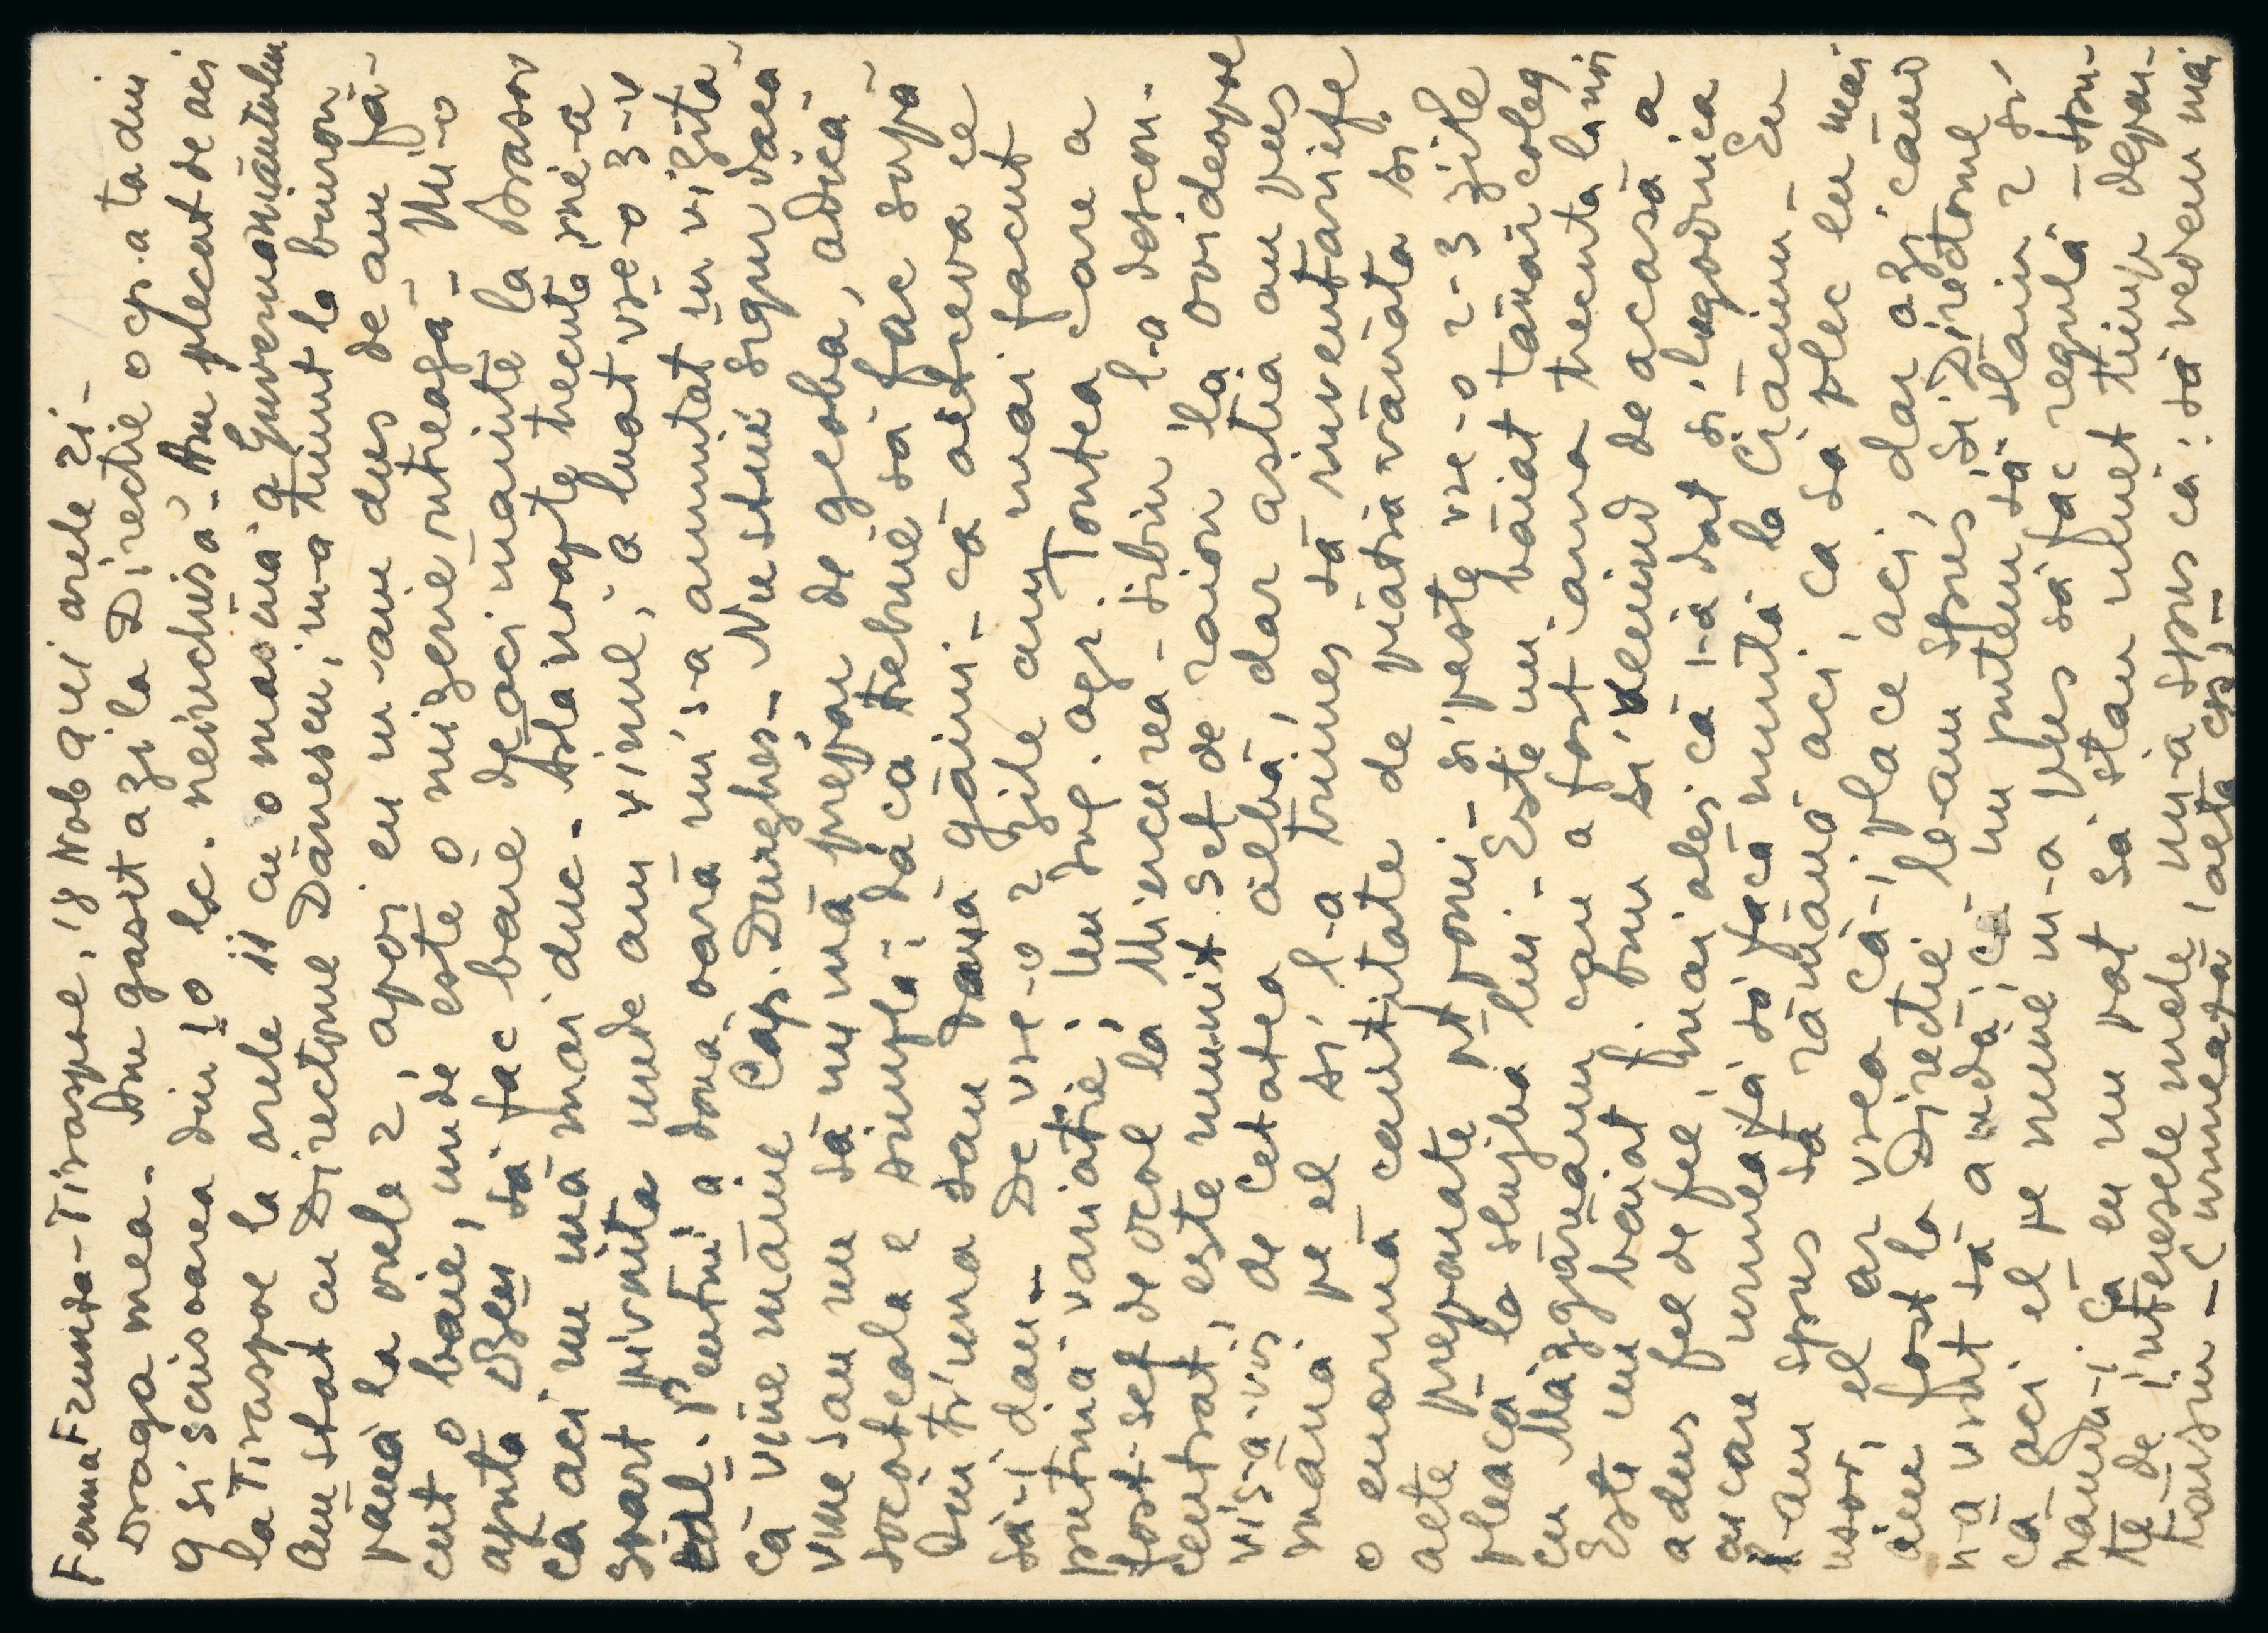 Ferma Frunza-Tiraspol, 18 Nob a.c. orele 21-
Draga mea - Am gasit azi la Direcție o cp. a ta din
9 și scisoarea din 10 lc. neinchisă - Am plecat de aci
la Tiraspol la orele 11 cu o mașină a Guvernământului
Am stat cu Directorul Dănescu, m-a ținut la birou
până la orele 2, apoi eu m-am dus de am fă-
cut o baie, unde este o mizerie întreagă - Mi-o
ajuta Bzeu să fac baie de aci înainte la Brasov
că aci nu mă mai duc - Asta noapte trecută mi-a
spart pivnița unde am vinul, a luat vre-o 3-4
Pentru a doua oară mi s-a anunțat în vizită
că vine mâine Cap. Durghes - Nu știu sigur dacă
vine sau nu să nu mă prepar de geaba, adică
socoteala e simplă: dacă trebuie să fac supă
din trima sau două găini - că altceva ce
să-i dau - De vre-o 2 zile am mai făcut
puțină variație: Un sol. agr. Tontea care a
fost șef de ocol la Miercurea - Sibiu l-a descon-
centrat, este numit șef de raion la Ovideopol
vis-a-vis de Cetatea albă, dar ăștia au pus
mâna pe el și l-a trimes să inventarieze
o enormă cantitate de piatră vânătă și
alte preparate pt pomi - și peste vre-o 2-3 zile
pleacă la slujba lui - Este un băiat tânăr coleg
cu Măzgăreanu care a fost iarna trecută la noi
Este un băiat f. bun și venind de acasă a
adus fel de fel, mai ales că i-a dat și logodnica
cu care urmează să facă nuntă la Crăciun - Eu
i-am spus să rămână aci, ca să plec eu mai
ușor, el ar vrea că-i place aci, dar azi când
am fost la Direcție le-am spus și Directorul
n-a vrut să audă, că nu putem să stăm 2 și
că aci el pe mine m-a pus să fac regulă - Eu-
raudu-i că eu nu pot să stau mult timp depar-
te de interesele mele, mi-a spus că: să vedem mai
târziu - (urmează alta cp) -